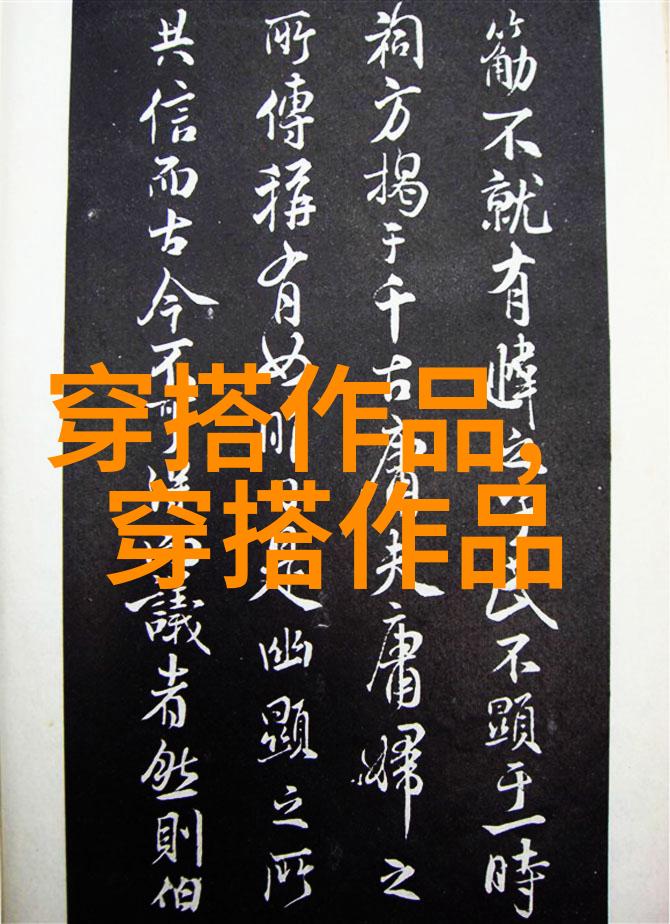 不就有之民不顯于一時
祠方揭于千古庸夫庸婦之
所傳稱有如明是幽顯之所
共信而古今不可議者然則伯
穿搭作品,
穿搭作品